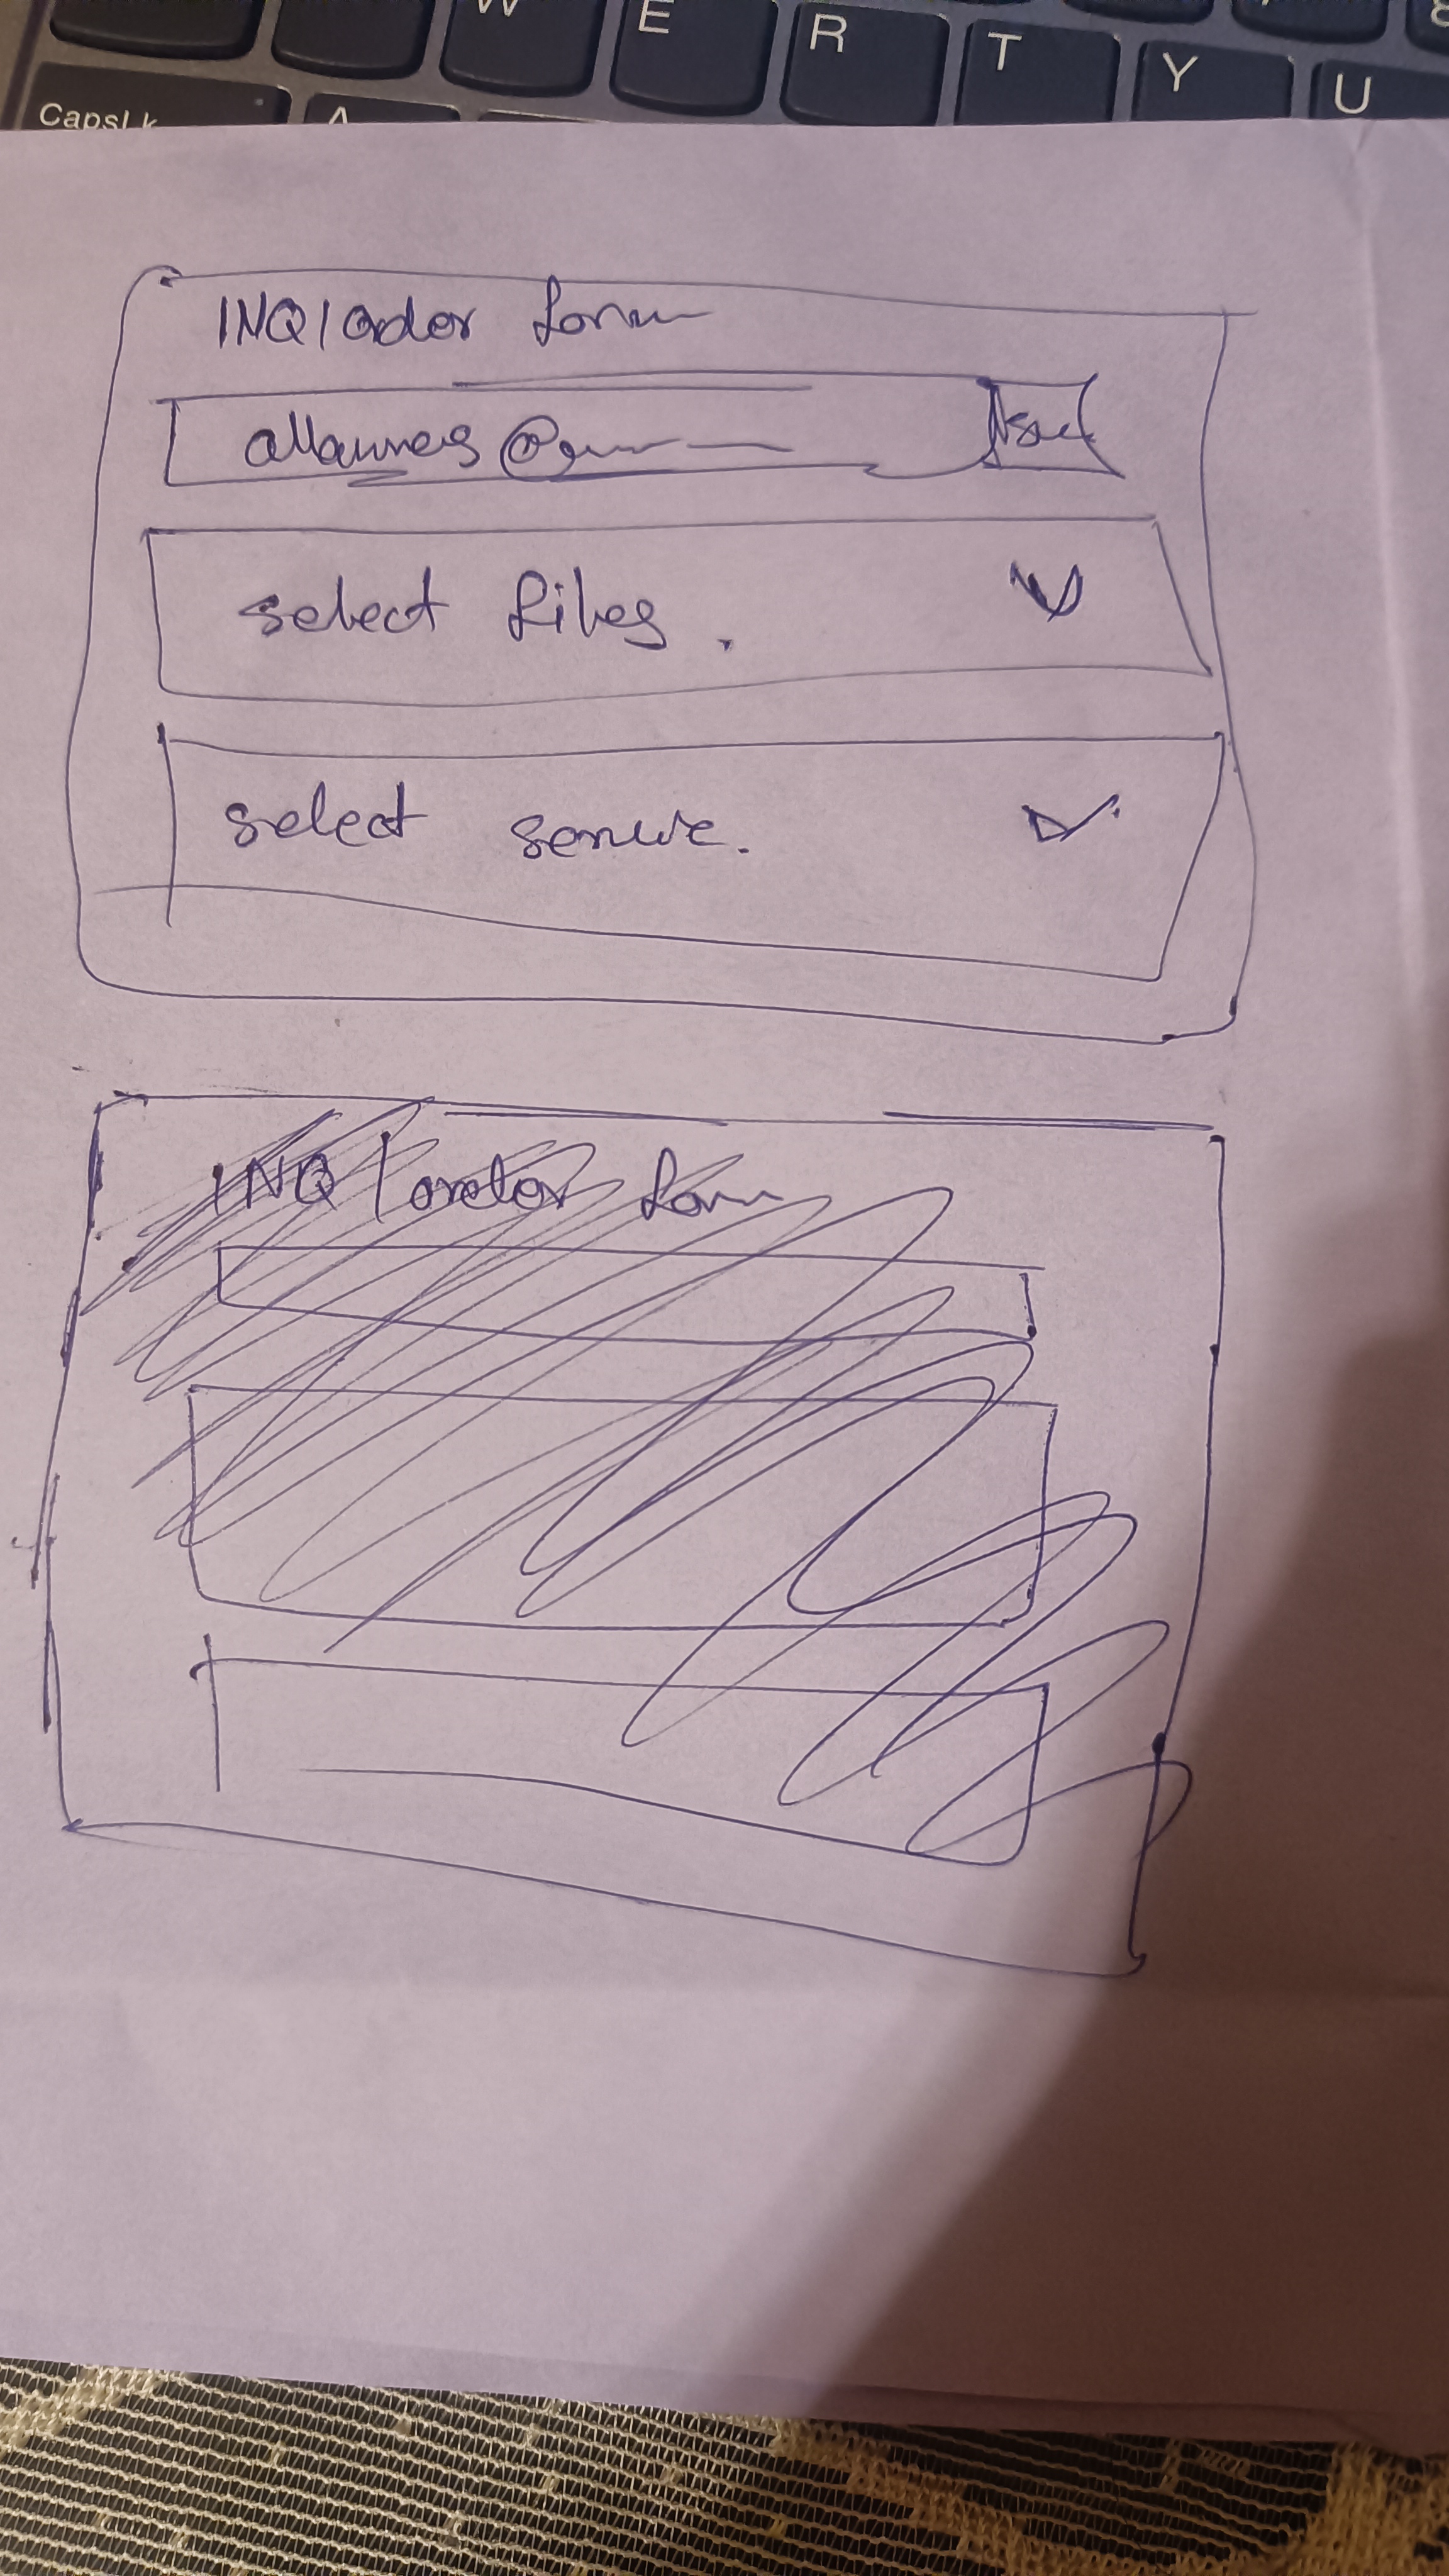 W E R T Y U
CapsLk A
INQ/Order form
select files.
select service.
INQ/order form